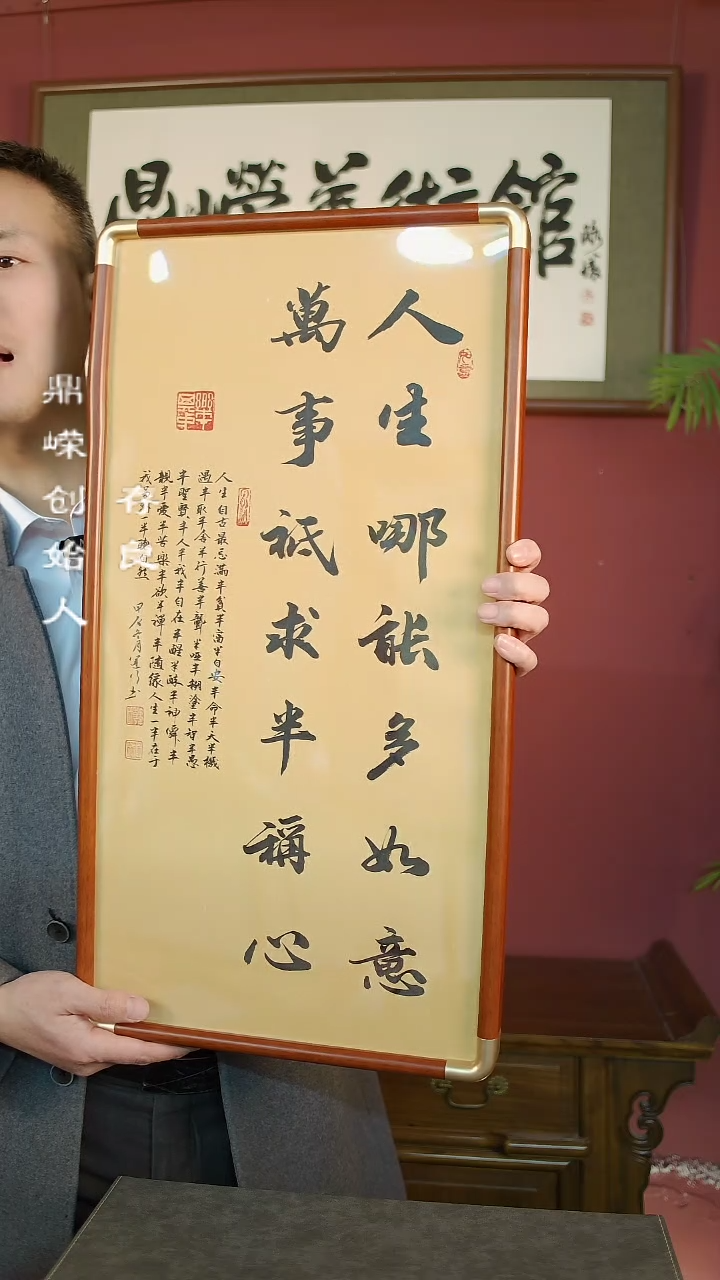 鼎嵘美術館
人生哪能多如意
萬事祗求半稱心
人生自古最忌滿半貧半富半自安半命半天半機
遇半取半舍半行善半聾半啞半糊塗半智半愚
半聖賢半人半我半自在半醒半醉半神僊半
親半愛半苦樂半欲半禪半隨緣人生一半在于
我一半自然
甲辰
鼎嵘创始人
存良